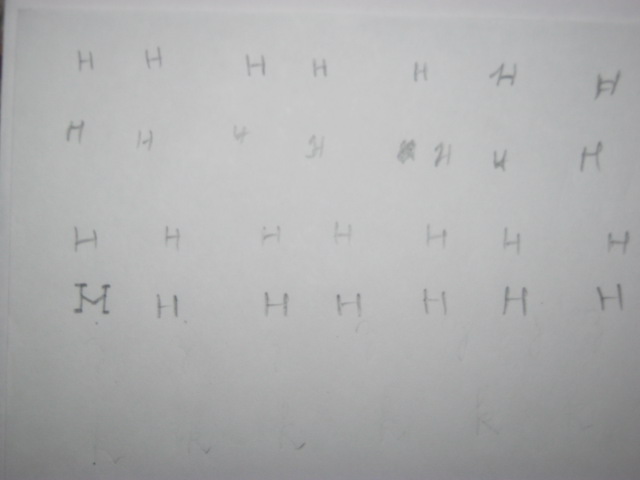 H H H H H H H
H H H H H H H
H H H H H H H
H H H H H H H